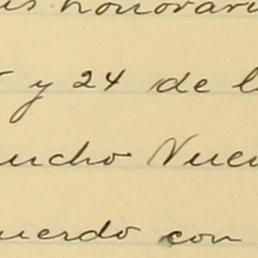 honorari
y 24 de l
ucho Nuev
uerdo con